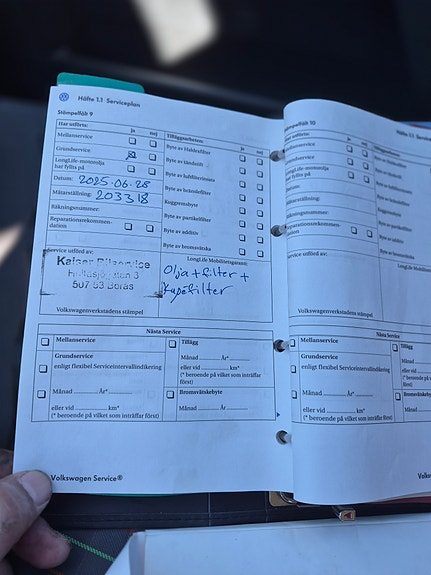 Häfte 1.1 Serviceplan
Stämpelfält 9
Har utförts: ja nej
Mellanservice
Grundservice
LongLife-motorolja
har fyllts på
Datum: 2025-06-28
Mätarställning: 203318
Räkningsnummer:
Reparationsrekommen-
dation
Tilläggsarbeten: ja nej
Byte av Haldexfilter
Byte av tändstift
Byte av luftfilterinsats
Byte av bränslefilter
Kuggremsbyte
Byte av partikelfilter
Byte av additiv
Byte av bromsvätska
Service utförd av:
Kaiser Bilservice
507 53 Borås
Volkswagenverkstadens stämpel
LongLife Mobilitetsgaranti:
Olja + filter +
Kupefilter
Nästa Service
Mellanservice
Grundservice
enligt flexibel Serviceintervallindikering
Månad ............ År*............
eller vid ............ km*
(* beroende på vilket som inträffar
först)
Tillägg
Månad ............ År*............
eller vid ............ km*
(* beroende på vilket som inträffar
först)
Bromsvätskebyte
Månad ............ År ............
Volkswagen Service®
Stämpelfält 10
Har utförts: ja nej
Mellanservice
Grundservice
LongLife-motorolja
har fyllts på
Datum:
Mätarställning:
Räkningsnummer:
Reparationsrekommen-
dation
Tilläggsarbeten:
Byte av Haldexfilter
Byte av tändstift
Byte av luftfilterinsats
Byte av bränslefilter
Kuggremsbyte
Byte av partikelfilter
Byte av additiv
Byte av bromsvätska
Service utförd av:
LongLife Mobi
Volkswagenverkstadens stämpel
Nästa Service
Mellanservice
Grundservice
enligt flexibel Serviceintervallindikering
Månad ............ År*............
eller vid ............ km*
(* beroende på vilket som inträffar
först)
Tillägg
Månad
eller vid
(* beroende
först)
Bromsvätskeb
Månad
Volksw